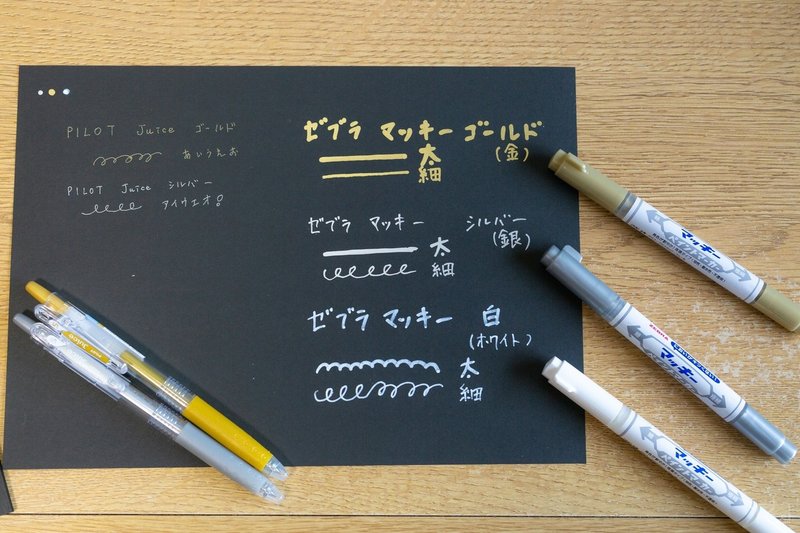 PILOT Juice ゴールド
あいうえお
PILOT Juice シルバー
アイウエオ!
ゼブラ マッキー ゴールド
(金)
太
細
ゼブラ マッキー シルバー
(銀)
太
細
ゼブラ マッキー 白
(ホワイト)
太
細
マッキー
ZEBRA
マッキー
マッキー
Juice